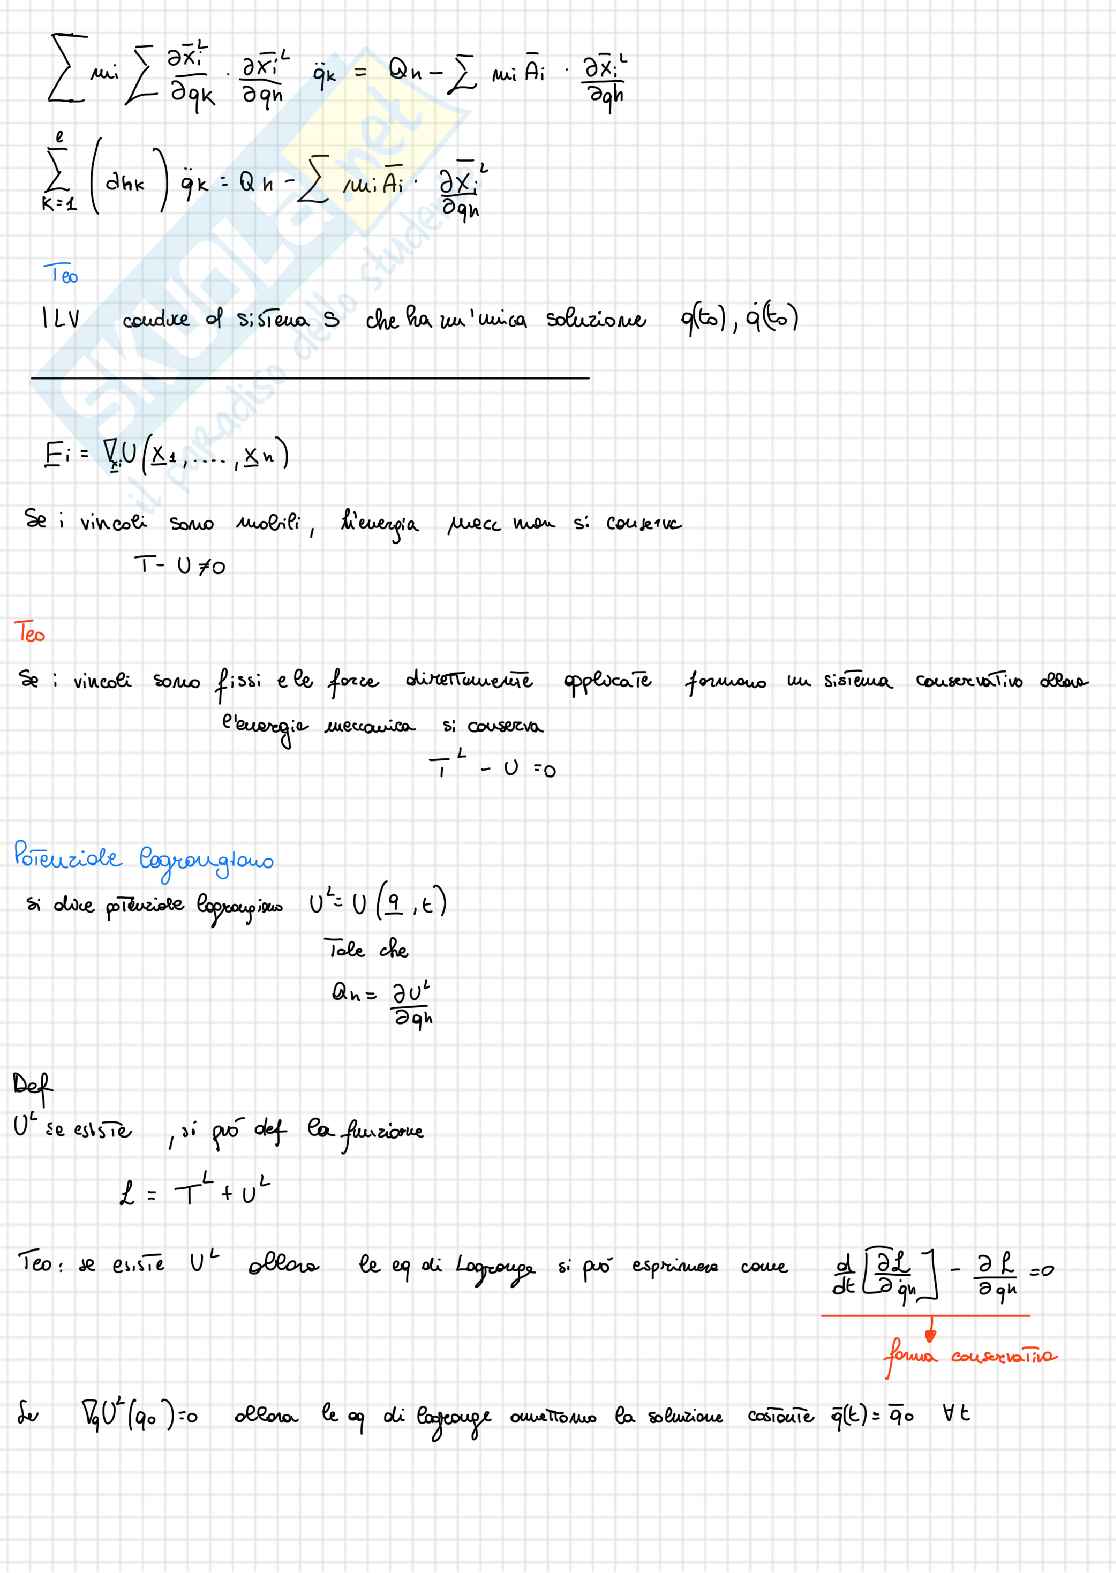 ∑ mi ∑ ∂x̄ᵢᴸ/∂qk · ∂x̄ᵢᴸ/∂qh q̈k = Qh - ∑ mi Āi · ∂x̄ᵢᴸ/∂qh
∑_{k=1}^{e} (ahk) q̈k = Qh - ∑ mi Āi · ∂x̄ᵢᴸ/∂qh
Teo
ILV conduce al sistema S che ha un'unica soluzione q(to), q̇(to)
Fi = ∇xi U(x1, ...., xn)
Se i vincoli sono mobili, l'energia mecc non si conserva
T - U ≠ 0
Teo
Se i vincoli sono fissi e le forze direttamente applicate formano un sistema conservativo allora
l'energia meccanica si conserva
Tᴸ - U = 0
Potenziale lagrangiano
si dice potenziale lagrangiano Uᴸ = U(q, t)
Tale che
Qh = ∂Uᴸ/∂qh
Def
Uᴸ se esiste , si può def la funzione
ℒ = Tᴸ + Uᴸ
Teo: se esiste Uᴸ allora le eq di Lagrange si può esprimere come d/dt [∂ℒ/∂q̇h] - ∂ℒ/∂qh = 0
forma conservativa
Se ∇qUᴸ(qo) = 0 allora le eq di lagrange ammettono la soluzione costante q̄(t) = q̄o ∀t
SKUOLA.net
il paradiso dello studente